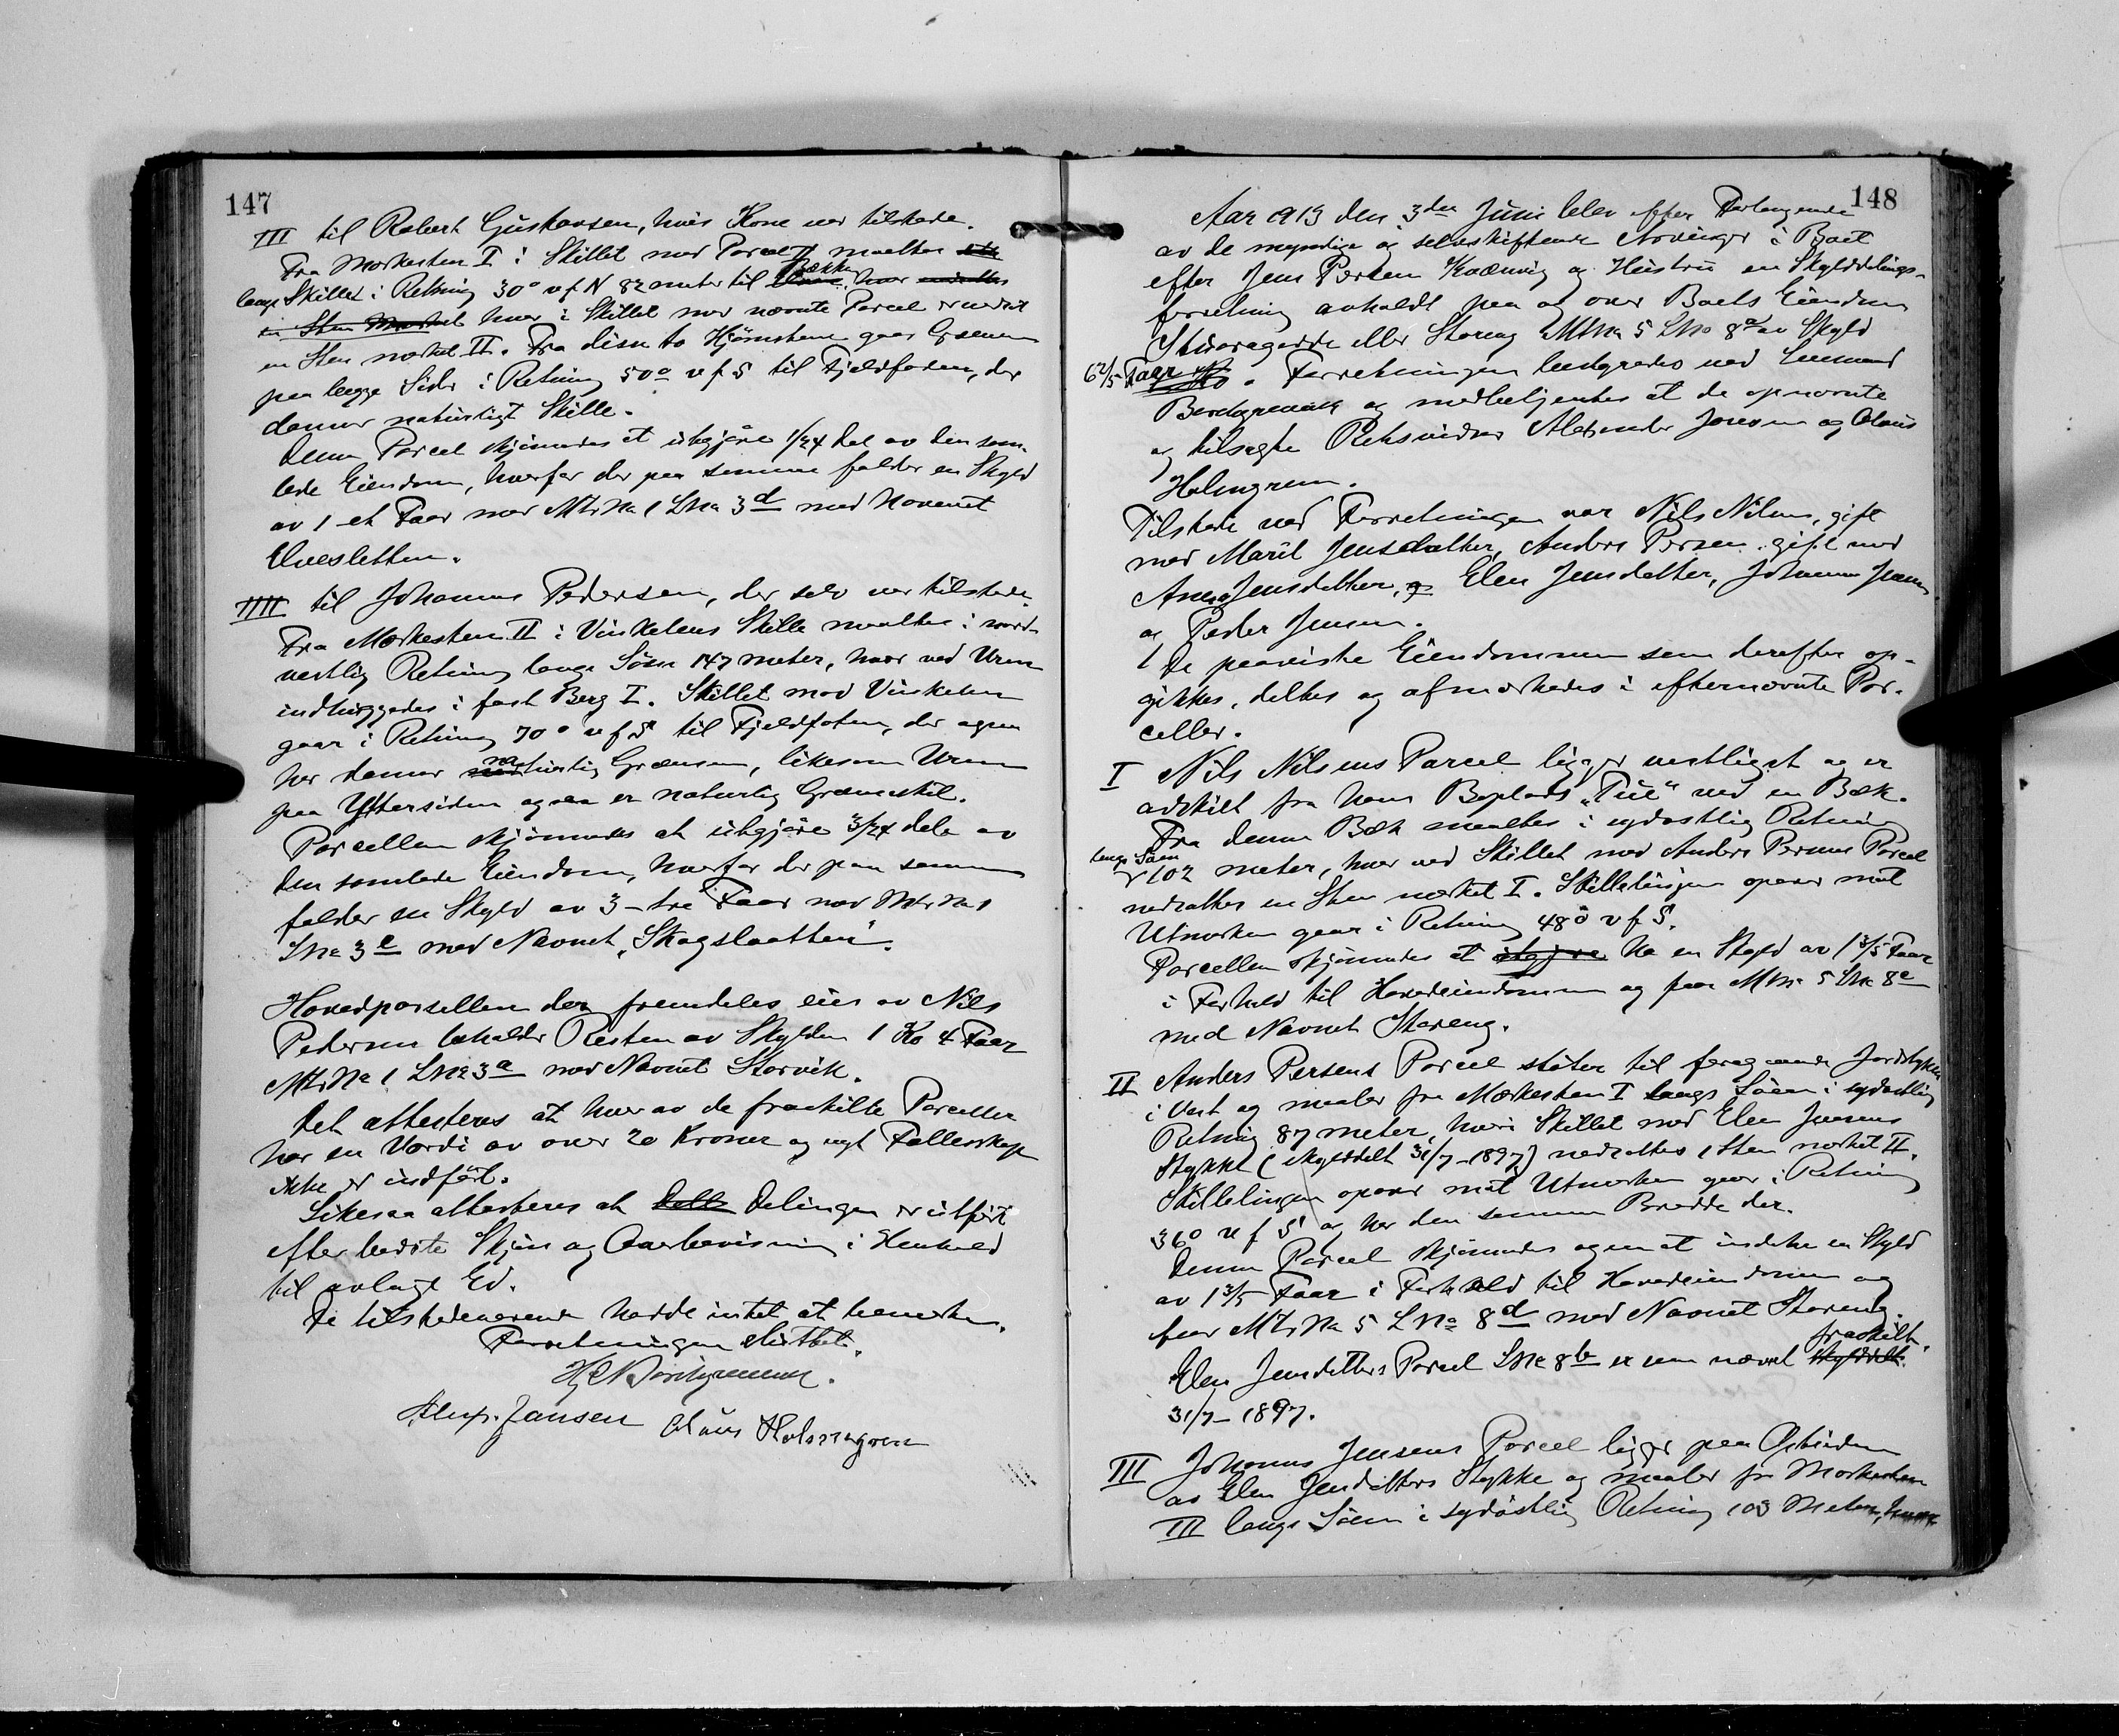 147
III til Robert Gustavsen, hvis Kone var tilstede.
Fra Merkesten I i Skillet mod Parcel II maaltes
langs Skillet i Retning 30° v f N 82 meter til Bækken, hvor
en Sten Merket hvor i Skillet mod nævnte Parcel er nedsat
en Sten merket II. Fra disse to Hjørnestene gaar Grænsen
paa begge Sider i Retning 50° v f S til Fjeldfoden, der
danner naturligt Skille.
Denne Parcel skjønnedes at utgjøre 1/24 Del av den sam-
lede Eiendom, hvorfor der paa samme falder en Skyld
av 1 et Faar med Mtr No 1 LNo 3d med Navnet
Elvesletten.
IIII til Johannes Pedersen, der selv var tilstede.
Fra Merkesten II i Vinkelens Skille maaltes i nord-
vestlig Retning langs Søen 147 meter, hvor ved Uren
indhuggedes i fast Berg I. Skillet mod Vinkelen
gaar i Retning 70° v f S til Fjeldfoten, der ogsaa
her danner naturlig Grænsen, likesom Uren
paa Yttersiden ogsaa er naturlig Grænseskil.
Parcellen skjønnedes at utgjøre 3/24 dele av
den samlede Eiendom, hvorfor der paa samme
falder en Skyld av 3 - tre Faar med Mtr No 1
LNo 3e med Navnet „Skogslaatten“.
Hovedparsellen der fremdeles eies av Nils
Pedersen beholder Resten av Skylden 1 Ko 4 Faar
Mtr No 1 LNo 3a med Navnet Storvik.
Det attesteres at hver av de fraskilte Parceller
har en Værdi av over 20 Kroner og nyt Fællesskap
ikke er indført.
Likesaa attesteres at Delingen er utført
efter bedste Skjøn og Overbevisning i Henhold
til avlagt Ed.
De tilstedeværende hadde intet at bemerke.
Forretningen sluttet.
H C Borchgrevink.
Alex. Jansen Olaus Holmgren
148
Aar 1913 den 3die Juni blev efter Forlangende
av de myndige og selvskiftende Arvinger i Boet
efter Jens Persen Kvænvig og Hustru en Skylddelings-
forretning avholdt paa og over Boets Eiendom
Storeng MtNo 5 LNo 8a av Skyld
6 2/5 Faar. Forretningen bestyredes ved Lensmand
Borchgrevink og medbetjentes at de opnævnte
og tilsagte Retsvidner Alexander Jansen og Olaus
Holmgren.
Tilstede ved Forretningen var Nils Nilsen, gift
med Marit Jensdatter, Anders Persen, gift med
Ane Jensdatter, Elen Jensdatter, Johannes Jensen
og Peder Jensen.
De paaviste Eiendommen som derefter op-
gikkes, deltes og afmerkedes i efternævnte Par-
celler.
I Nils Nilsens Parcel ligger vestligst og er
adskilt fra hans Boplads „Tue“ ved en Bæk.
Fra denne Bæk maaltes i sydøstlig Retning
langs Søen
102 meter, hvor ved Skillet mod Anders Persens Parcel
nedsattes en Sten merket I. Skillelinjen opover mot
Utmarken gaar i Retning 48° v f S.
Parcellen skjønnedes at utgjøre ha en Skyld av 1 3/5 Faar
i Forhold til Hovedeiendommen og faar MNo 5 LNo 8c
med Navnet Storeng.
II Anders Persens Parcel støter til foregaaende Jordstykke
i Vest og maaler fra Merkesten I langs Søen i sydøstlig
Retning 87 meter, hvor i Skillet mod Elen Jensens
Stykke (skylddelt 31/7-1897) nedsattes 1 Sten merket II.
Skillelinjen opover mot Utmarken gaar i Retning
36° v f S og har den samme Bredde der.
Denne Parcel skjønnedes ogsaa at indeha en Skyld
av 1 3/5 Faar i Forhold til Hovedeiendommen og
faar Mtr No 5 LNo 8d med Navnet Storeng.
fraskilt
Elen Jensdatters Parcel LNo 8b er som nævnt skylddelt
31/7-1897.
III Johannes Jensens Parcel ligger paa Østsiden
av Elen Jensdatters Stykke og maaler fra Merkesten
III langs Søen i sydøstlig Retning 103 Meter, hvor